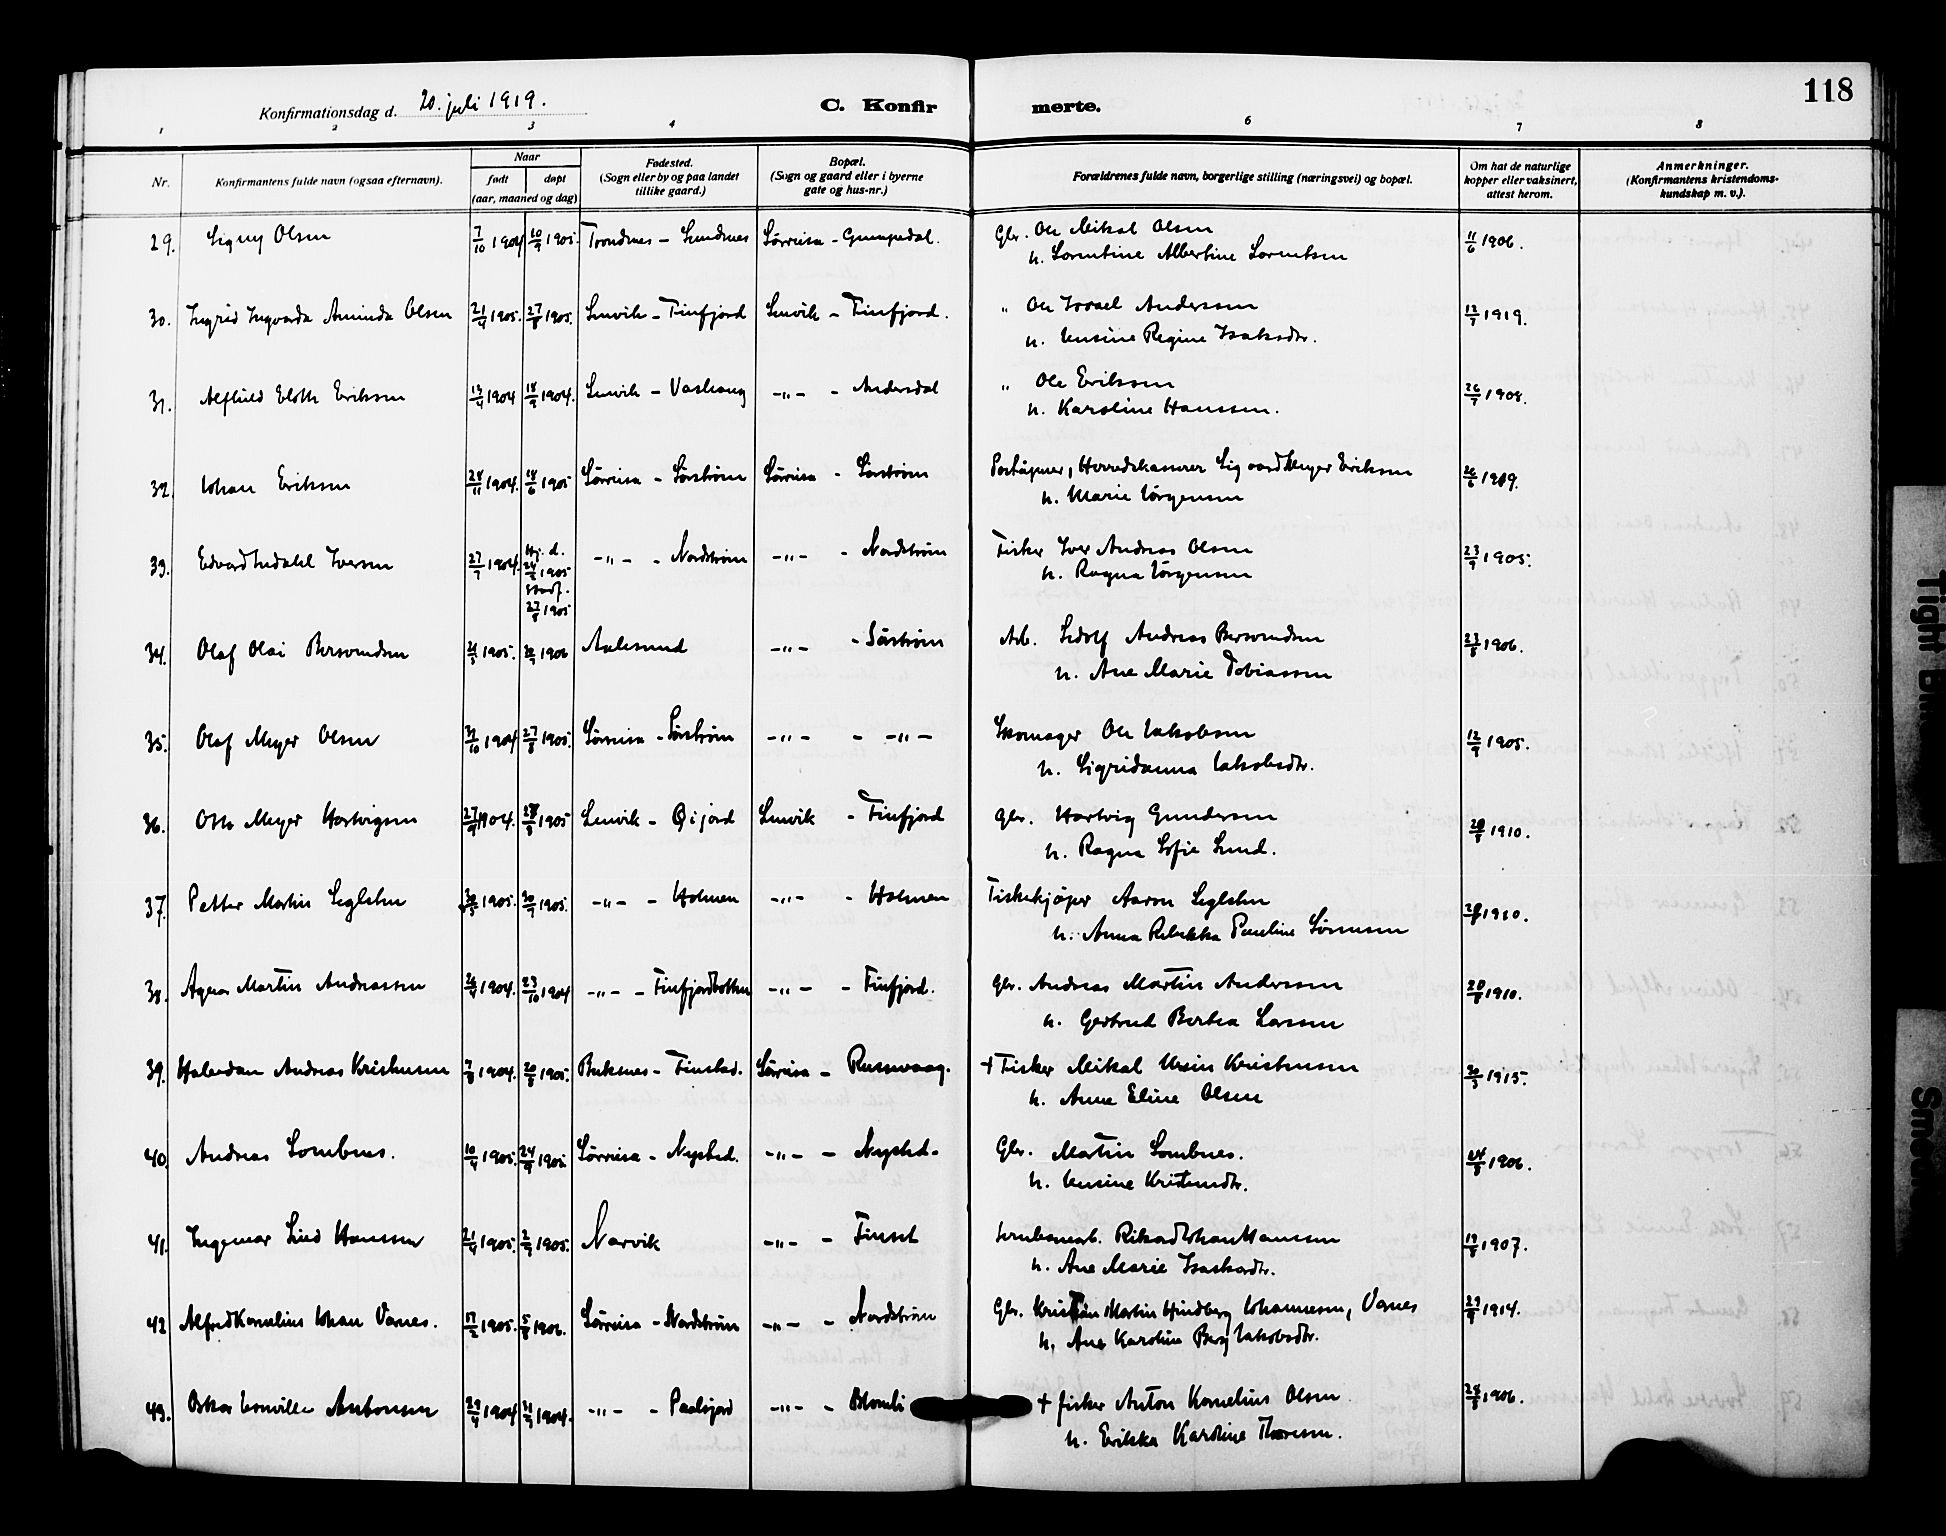 118
Konfirmationsdag d. 20. juli 1919.
C. Konfirmerte.
1 2 3 4 6 7 8
Nr.
Konfirmantens fulde navn (ogsaa efternavn).
Naar
født døpt
(aar, maaned og dag)
Fødested.
(Sogn eller by og paa landet
tillike gaard.)
Bopæl.
(Sogn og gaard eller i byerne
gate og hus-nr.)
Forældrenes fulde navn, borgerlige stilling (næringsvei) og bopæl.
Om hat de naturlige
kopper eller vaksinert,
attest herom.
Anmerkninger.
(Konfirmantens kristendoms-
kundskap m. v.).
29. Signy Olsen 7/10 1904 10/9 1905. Trondnes - Sandnes Sørreisa - Gumpedal. Gbr. Ole Mikal Olsen 11/6 1906.
h. Lorentine Albertine Lorentsen
30. Ingrid Ingvarda Aminda Olsen 21/4 1905. 27/8 1905. Lenvik - Finfjord Lenvik - Finfjord. " Ole Israel Anderssen 13/7 1919.
h. Unsine Regine Isaksdtr.
31. Alfhild Eriksen 13/4 1904 18/9 1904. Lenvik - Vashaug -"- - Andersdal " Ole Eriksen 26/7 1908.
h. Karoline Hanssen.
32. Johan Eriksen 28/11 1904. 18/6 1905 Sørreisa - Sørstrøm Sørreisa - Sørstrøm Postaapner, Herredskasserer Sigvard Meyer Eriksen
h. Marie Jørgensen
33. Edvard Indahl Iversen 27/7 1904. Hj. d. -"- - Nordstrøm -"- - Nordstrøm Fisker Iver Andreas Olsen 23/9 1905.
1905
Stadf.
27/8 1905
h. Ragna Jørgensen
34. Olaf Olai Bersvendsen 1905. 1906 Aalesund -"- - Sørstrøm Arb. Sedolf Andreas Bersvendsen 23/8 1906.
h. Ane Marie Tobiassen
35. Olaf Meyer Olsen 1904 27/8 1905. Sørreisa - Sørstrøm -"- - -"- Skomager Ole Jakobsen 12/9 1905.
h. Sigridanna Jakobsdtr.
36. Otto Meyer Hartvigsen 1904. 1905 Lenvik - Øijord Lenvik - Finfjord Gbr. Hartvig Gundersen 1910.
h. Ragna Sofie Lund.
37. Petter Martin Seglsten 1905. 1905. -"- - Holmen -"- - Holmen Fiskekjøper Aaron Seglsten 1910.
h. Anna Rebekka Pauline Sørensen
38. Agnar Martin Andreassen 1904. 23/10 1904 -"- - Finfjordbotten -"- - Finfjord. Gbr. Andreas Martin Anderssen 20/8 1910.
h. Gertrud Bertea Larssen
39. Halvdan Andreas Kristensen 7/8 1904. 20/8 1905. Buksnes - Finstad. Sørreisa - Russevaag. + Fisker Mikal Ursin Kristensen 1915.
h. Anne Eline Olsen
40. Andreas Sombnes. 10/4 1905. 24/9 1905. Sørreisa - Nysted. -"- - Nysted - Gbr. Martin Sombnes. 1906.
h. Unsine Kristendtr.
41. Ingemar Lind Hanssen 21/4 1905. 1905. Narvik -"- - Finset Jernbanearb. Rikard Johan Hanssen 19/8 1907.
h. Ane Marie Isaksdtr.
42 Alfred Kornelius Johan Vanes. 1905. 5/8 1906. Sørreisa - Nordstrøm -"- - Nordstrøm Gbr. Kristian Martin Hindberg Johannesen, Vanes 1914.
h. Ane Karoline Berg Jakobsdtr.
43. Oskar Antonsen 1904 1904. -"- - Paalsjord -"- - Blomli + fisker Anton Kornelius Olsen 1906.
h. Erikka Karoline Thoresen.
Tight